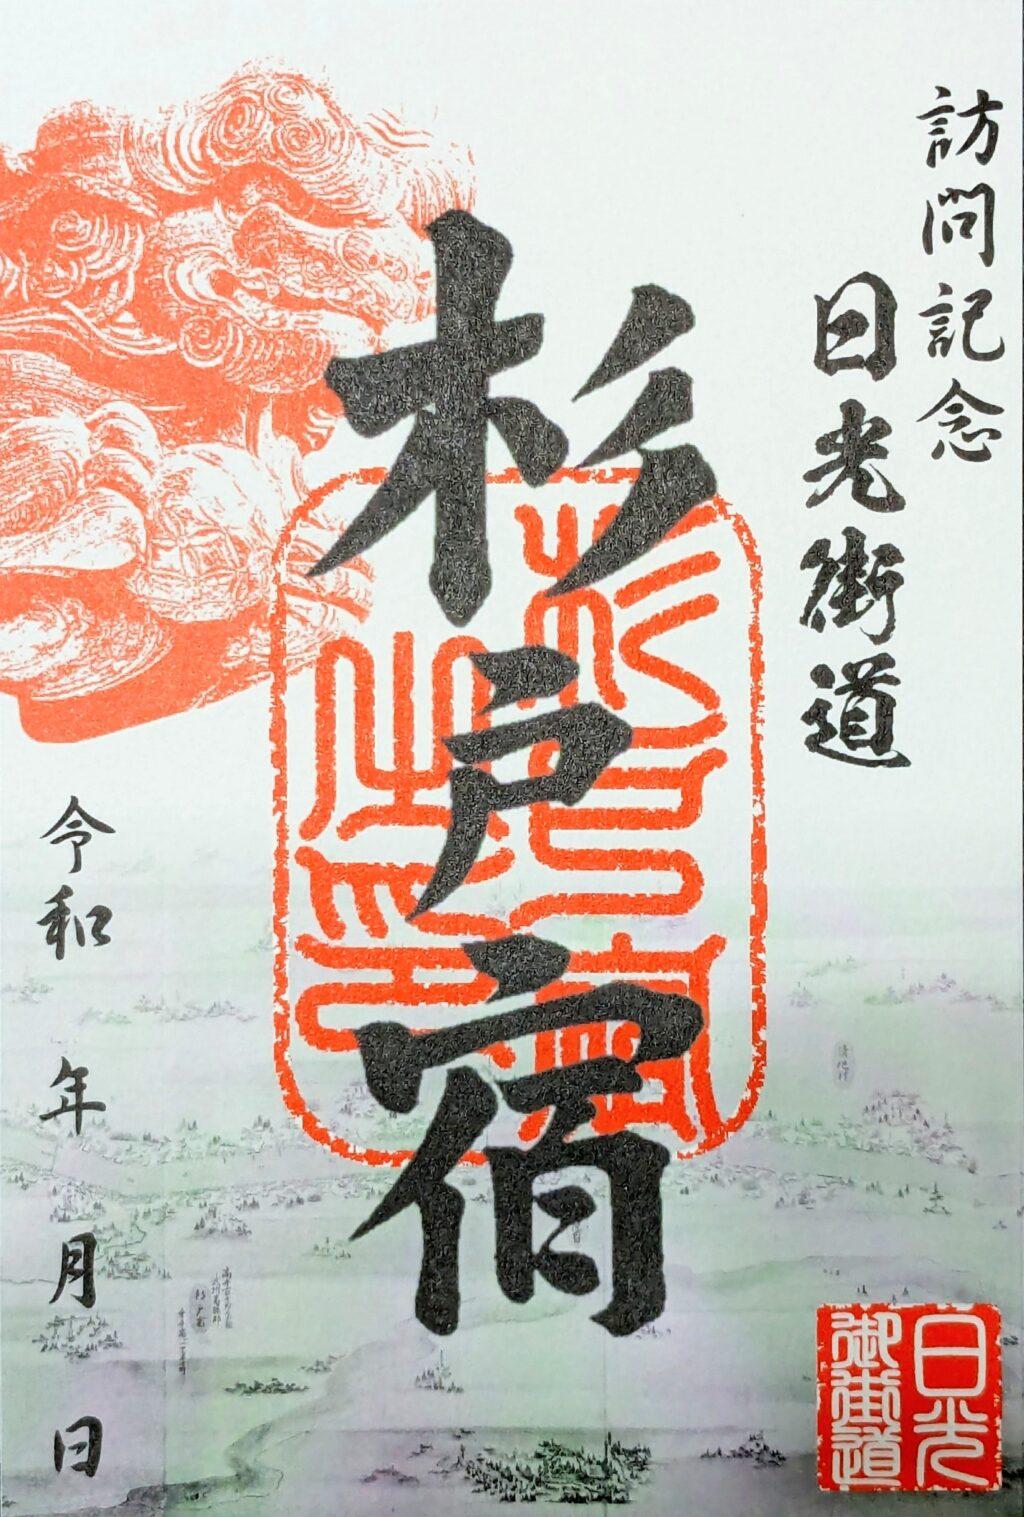 訪問記念
日光街道
杉戸宿
杉戸宿
之印
令和 年 月 日
日光
御街道